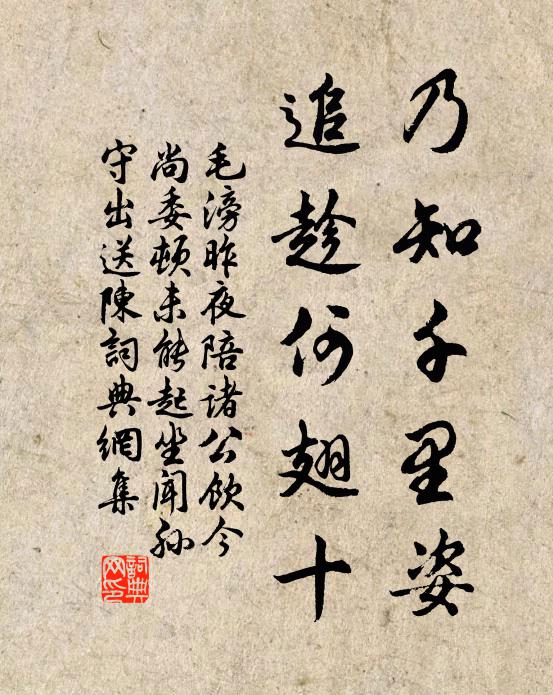 乃知千里姿
追趁何翅十
毛滂昨夜陪诸公饮今
尚委顿未能起坐闻孙
守出送陳詞典網集
詞典网印